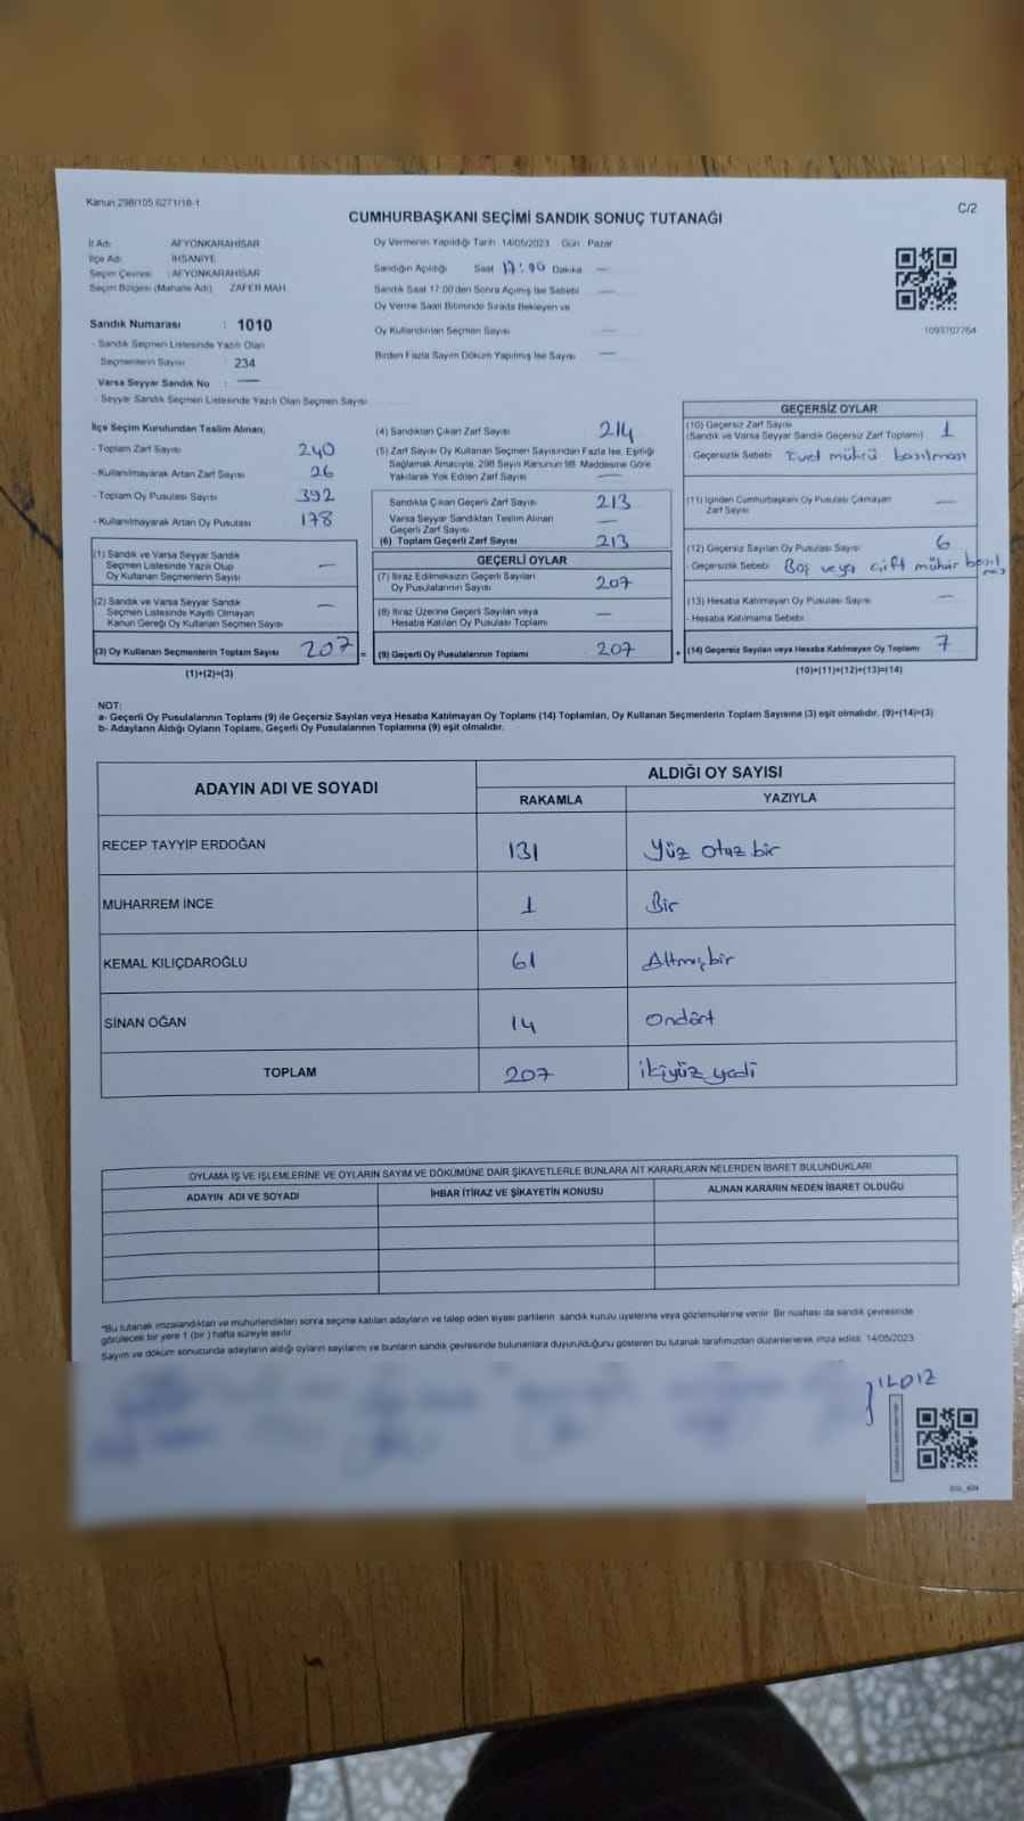 Kanun 298/105 6271/18-1
C/2
CUMHURBAŞKANI SEÇİMİ SANDIK SONUÇ TUTANAĞI
İl Adı AFYONKARAHİSAR
İlçe Adı İHSANİYE
Seçim Çevresi : AFYONKARAHİSAR
Seçim Bölgesi (Mahalle Adı) ZAFER MAH.
Sandık Numarası : 1010
- Sandık Seçmen Listesinde Yazılı Olan
Seçmenlerin Sayısı 234
Varsa Seyyar Sandık No : —
- Seyyar Sandık Seçmen Listesinde Yazılı Olan Seçmen Sayısı
Oy Vermenin Yapıldığı Tarih 14/05/2023 Gün Pazar
Sandığın Açıldığı Saat 17:00 Dakika —
Sandık Saat 17:00'den Sonra Açılmış İse Sebebi —
Oy Verme Saati Bitiminde Sırada Bekleyen ve
Oy Kullandırılan Seçmen Sayısı —
Birden Fazla Sayım Döküm Yapılmış İse Sayısı —
1093707764
İlçe Seçim Kurulundan Teslim Alınan;
- Toplam Zarf Sayısı 240
- Kullanılmayarak Artan Zarf Sayısı 26
- Toplam Oy Pusulası Sayısı 392
- Kullanılmayarak Artan Oy Pusulası 178
(1) Sandık ve Varsa Seyyar Sandık
Seçmen Listesinde Yazılı Olup
Oy Kullanan Seçmenlerin Sayısı —
(2) Sandık ve Varsa Seyyar Sandık
Seçmen Listesinde Kayıtlı Olmayan
Kanun Gereği Oy Kullanan Seçmen Sayısı —
(3) Oy Kullanan Seçmenlerin Toplam Sayısı 207 =
(1)+(2)=(3)
(4) Sandıktan Çıkan Zarf Sayısı 214
(5) Zarf Sayısı Oy Kullanan Seçmen Sayısından Fazla İse, Eşitliği
Sağlamak Amacıyla, 298 Sayılı Kanunun 98. Maddesine Göre
Yakılarak Yok Edilen Zarf Sayısı —
Sandıkta Çıkan Geçerli Zarf Sayısı 213
Varsa Seyyar Sandıktan Teslim Alınan
Geçerli Zarf Sayısı —
(6) Toplam Geçerli Zarf Sayısı 213
GEÇERLİ OYLAR
(7) İtiraz Edilmeksizin Geçerli Sayılan
Oy Pusulalarının Sayısı 207
(8) İtiraz Üzerine Geçerli Sayılan veya
Hesaba Katılan Oy Pusulası Toplamı —
(9) Geçerli Oy Pusulalarının Toplamı 207 +
GEÇERSİZ OYLAR
(10) Geçersiz Zarf Sayısı
(Sandık ve Varsa Seyyar Sandık Geçersiz Zarf Toplamı) 1
- Geçersizlik Sebebi Evet mührü basılması
(11) İçinden Cumhurbaşkanı Oy Pusulası Çıkmayan
Zarf Sayısı —
(12) Geçersiz Sayılan Oy Pusulası Sayısı 6
- Geçersizlik Sebebi Boş veya çift mühür
(13) Hesaba Katılmayan Oy Pusulası Sayısı —
- Hesaba Katılmama Sebebi
(14) Geçersiz Sayılan veya Hesaba Katılmayan Oy Toplamı 7
(10)+(11)+(12)+(13)=(14)
NOT:
a- Geçerli Oy Pusulalarının Toplamı (9) ile Geçersiz Sayılan veya Hesaba Katılmayan Oy Toplamı (14) Toplamları, Oy Kullanan Seçmenlerin Toplam Sayısına (3) eşit olmalıdır. (9)+(14)=(3)
b- Adayların Aldığı Oyların Toplamı, Geçerli Oy Pusulalarının Toplamına (9) eşit olmalıdır.
ADAYIN ADI VE SOYADI ALDIĞI OY SAYISI
RAKAMLA YAZIYLA
RECEP TAYYİP ERDOĞAN 131 Yüz otuz bir
MUHARREM İNCE 1 Bir
KEMAL KILIÇDAROĞLU 61 Altmışbir
SİNAN OĞAN 14 Ondört
TOPLAM 207 ikiyüz yedi
OYLAMA İŞ VE İŞLEMLERİNE VE OYLARIN SAYIM VE DÖKÜMÜNE DAİR ŞİKAYETLERLE BUNLARA AİT KARARLARIN NELERDEN İBARET BULUNDUKLARI
ADAYIN ADI VE SOYADI İHBAR İTİRAZ VE ŞİKAYETİN KONUSU ALINAN KARARIN NEDEN İBARET OLDUĞU
"Bu tutanak imzalandıktan ve mühürlendikten sonra seçime katılan adayların ve talep eden siyasi partilerin sandık kurulu üyelerine veya gözlemcilerine verilir. Bir nüshası da sandık çevresinde
görülecek bir yere 1 (bir) hafta süreyle asılır.
Sayım ve döküm sonucunda adayların aldığı oyların sayılarını ve bunların sandık çevresinde bulunanlara duyurulduğunu gösteren bu tutanak tarafımızdan düzenlenerek imza edildi. 14/05/2023